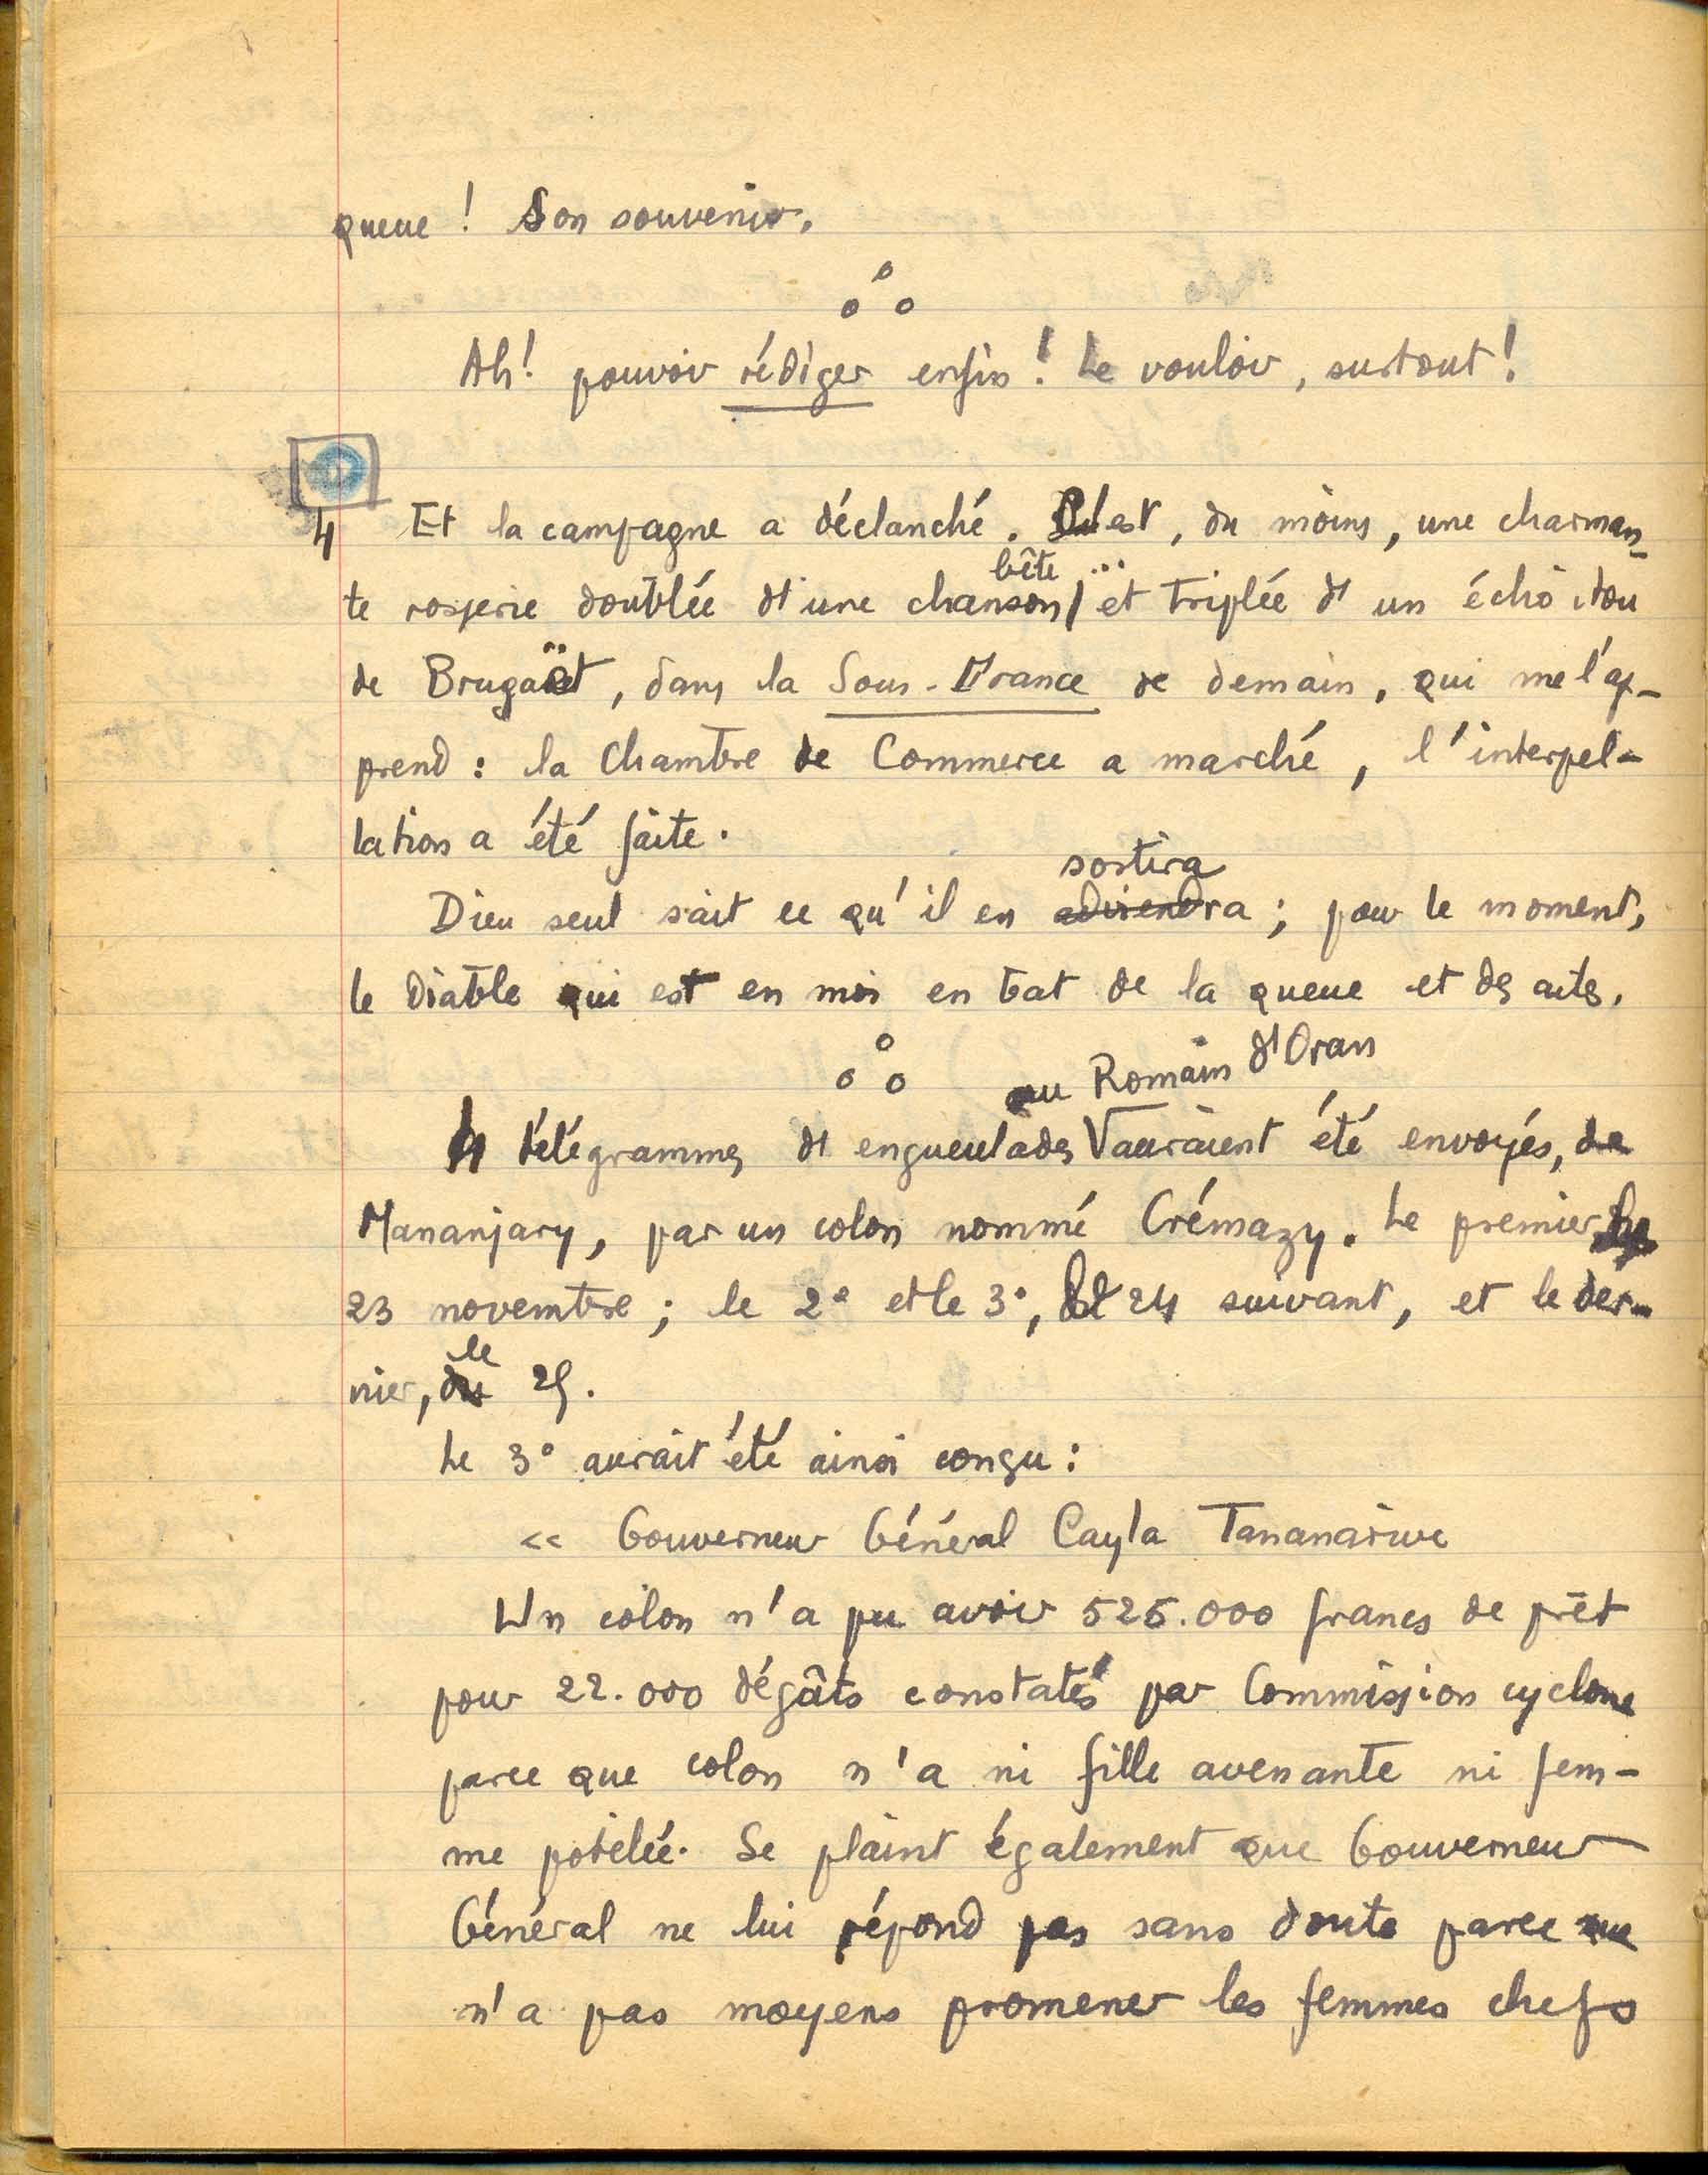 queue ! Son souvenir.
Ah ! pouvoir rédiger enfin ! Le vouloir, surtout !
4 Et la campagne a déclanché. C'est, du moins, une charman-
te rosserie doublée d'une chanson bête... et triplée d'un écho itou
de Brugaët, dans la Sous-France de demain, qui me l'ap-
prend : la Chambre de Commerce a marché, l'interpel-
lation a été faite.
sortira
Dieu seul sait ce qu'il en adviendra ; pour le moment,
le Diable qui est en moi en bat de la queue et des ailes.
au Romain d'Oran
4 télégrammes d'engueulades auraient été envoyés, de
Mananjary, par un colon nommé Crémazy. Le premier, le
23 novembre ; le 2e et le 3e, le 24 suivant, et le der-
le
nier, du 25.
Le 3e aurait été ainsi conçu :
« Gouverneur Général Cayla Tananarive
Un colon n'a pu avoir 525.000 francs de prêt
pour 22.000 dégâts constatés par Commission cyclone
parce que colon n'a ni fille avenante ni fem-
me potelée. Se plaint également que Gouverneur
Général ne lui répond pas sans doute parce que
n'a pas moyens promener les femmes chefs